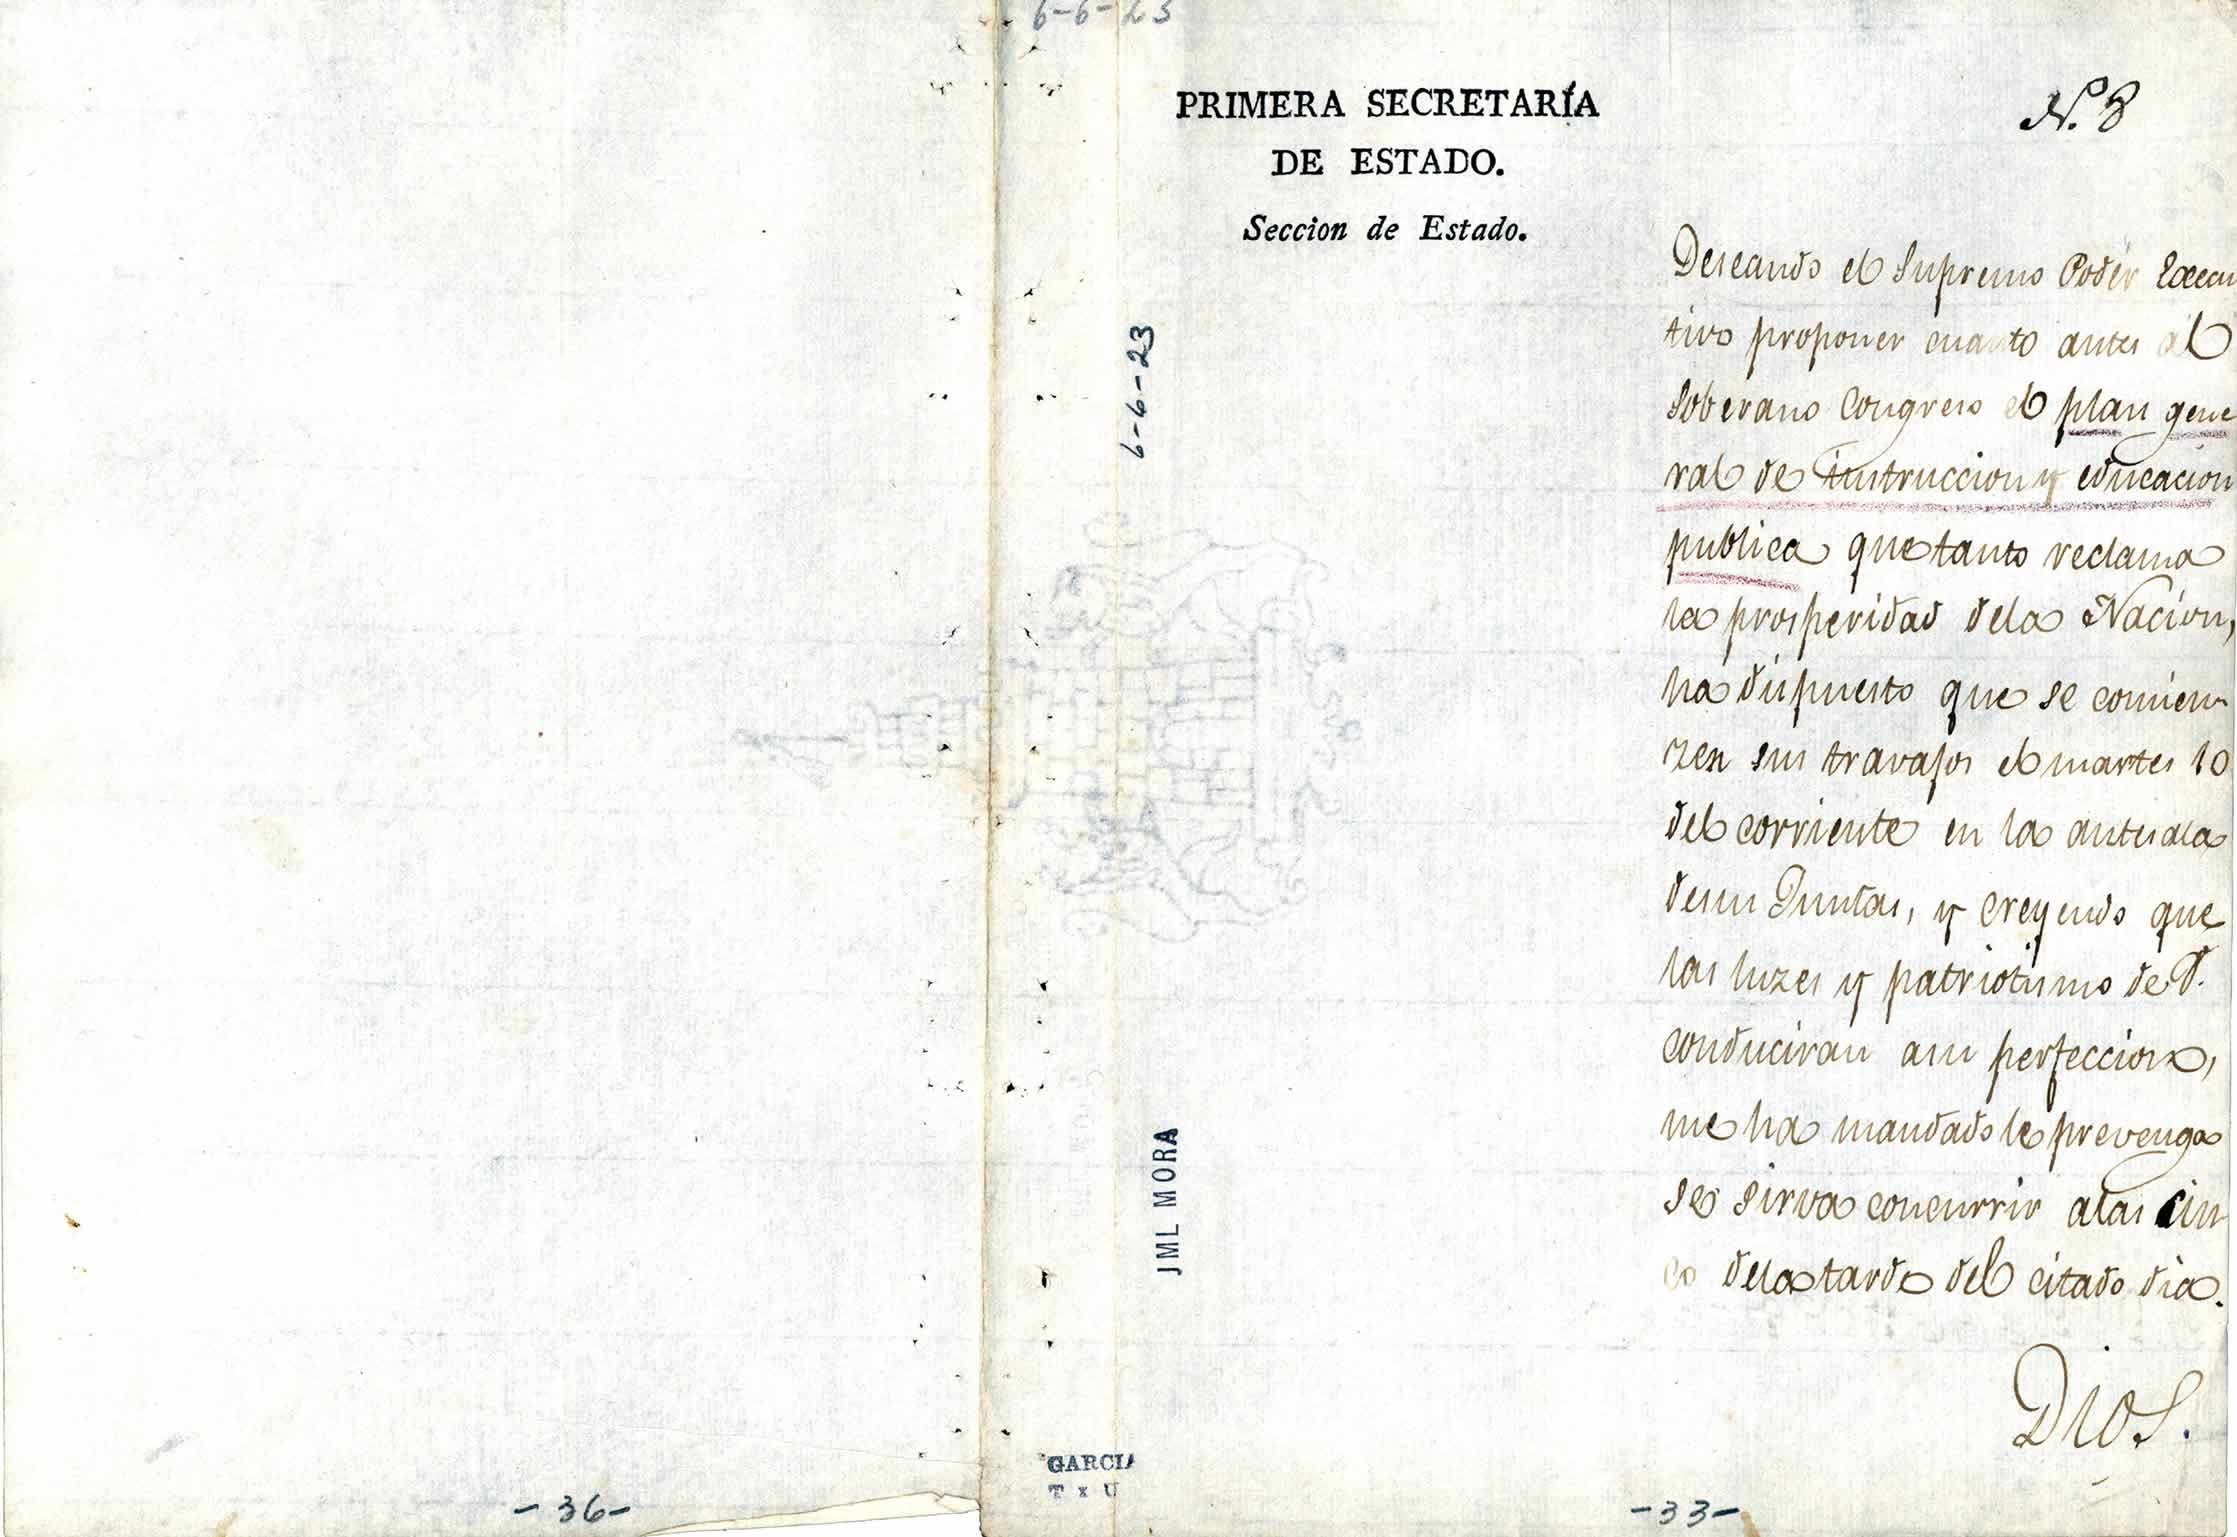 6-6-23
PRIMERA SECRETARÍA
DE ESTADO.
Seccion de Estado.
N.º 8
Deseando el Supremo Poder Execu
tivo proponer cuanto antes al
Soberano Congreso el plan gene
ral de instruccion y educacion
publica que tanto reclama
la prosperidad dela Nacion,
ha dispuesto que se comien-
zen sus travajos el martes 10
del corriente en la antesala
desus Juntas, y creyendo que
las luzes y patriotismo de V.
conduciran asu perfeccion,
me ha mandado le prevenga
se sirva concurrir alas cin
co dela tarde del citado dia.
Dios.
6-6-23
JML MORA
GARCIA
T x U
-36-
-33-